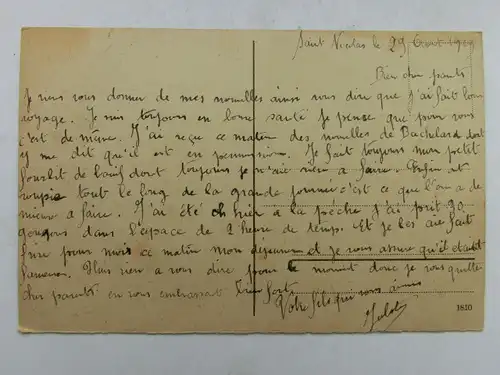 Saint Nicolas le 29 Aout 19
Bien cher parents
Je viens vous donner de mes nouvelles ainsi vous dire que j'ai fait bon
voyage. Je suis toujours en bonne santé Je pense que pour vous
c'est de même. J'ai reçu ce matin des nouvelles de Bachelard dont
y me dit qu'il est en permission. Je fait toujours mon petit
dont toujours je n'ai rien a faire. Enfin
tout le long de la grande journee c'est ce que l'on a de
mieux a faire. J'ai été hier a la pêche j'ai prit 30
goujons dans l'espace de 2 heure de temps. Et je les ai fait
frire pour moi ce matin mon dejeuner et je vous assure qu'il etait
fameux. Plus rien a vous dire pour le moment donc je vous quitte
cher parents en vous embrassant Tres fort.
Votre fils qui vous aime
1810